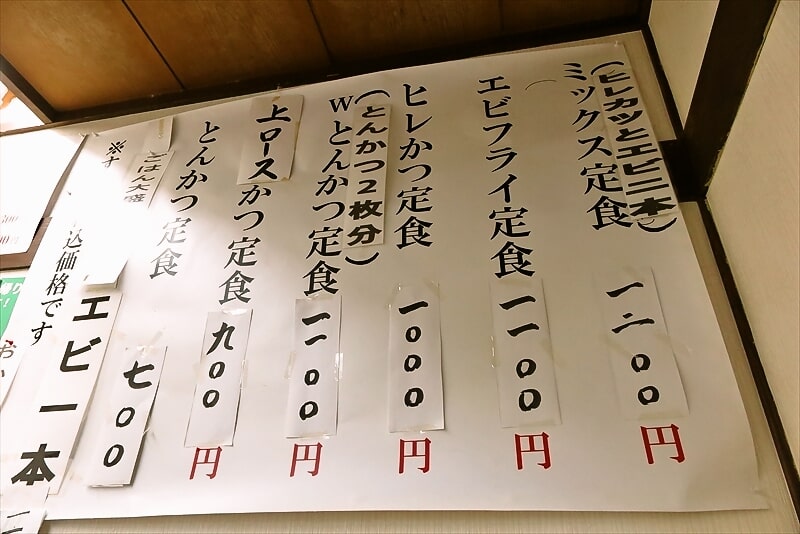 (ヒレカツとエビ二本)
ミックス定食
一二〇〇
円
エビフライ定食
一一〇〇
円
ヒレかつ定食
一〇〇〇
円
(とんかつ2枚分)
Wとんかつ定食
一一〇〇
円
上ロースかつ定食
九〇〇
円
とんかつ定食
七〇〇
ごはん大盛
エビ一本
※す
込価格です